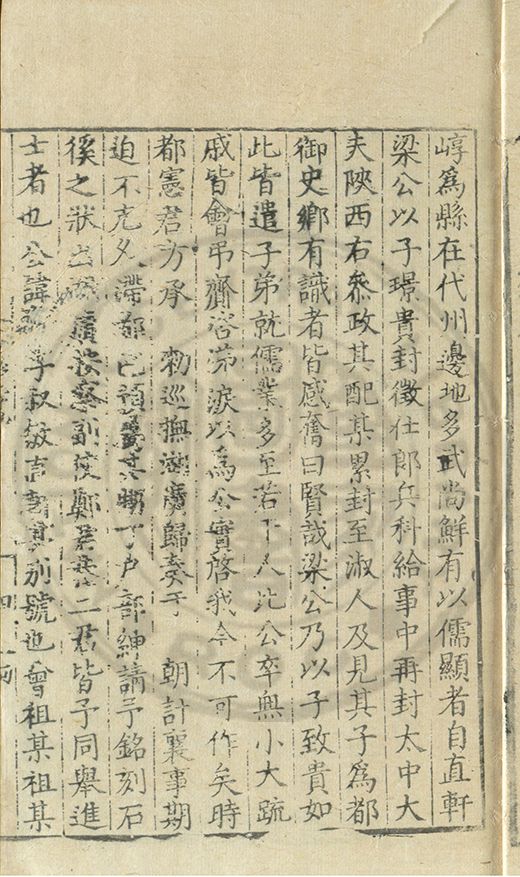 崞爲縣在代州邊地多武尚鮮有以儒顯者自直軒
梁公以子璟貴封徵仕郎兵科給事中再封太中大
夫陝西右叅政其配某累封至淑人及見其子爲都
御史鄉有識者皆感奮曰賢哉梁公乃以子致貴如
此皆遣子弟就儒業多至若干人比公卒無小大疏
戚皆會吊齎咨涕淚以爲公實啓我今不可作矣時
都憲君方承 勅巡撫湖廣歸奏于 朝計襄事期
迫不克久滯都 戶部紳請予銘刻石
徯之狀 副使鄭 二君皆予同舉進
士者也公諱 字叔 直 其別號也曾祖某祖某